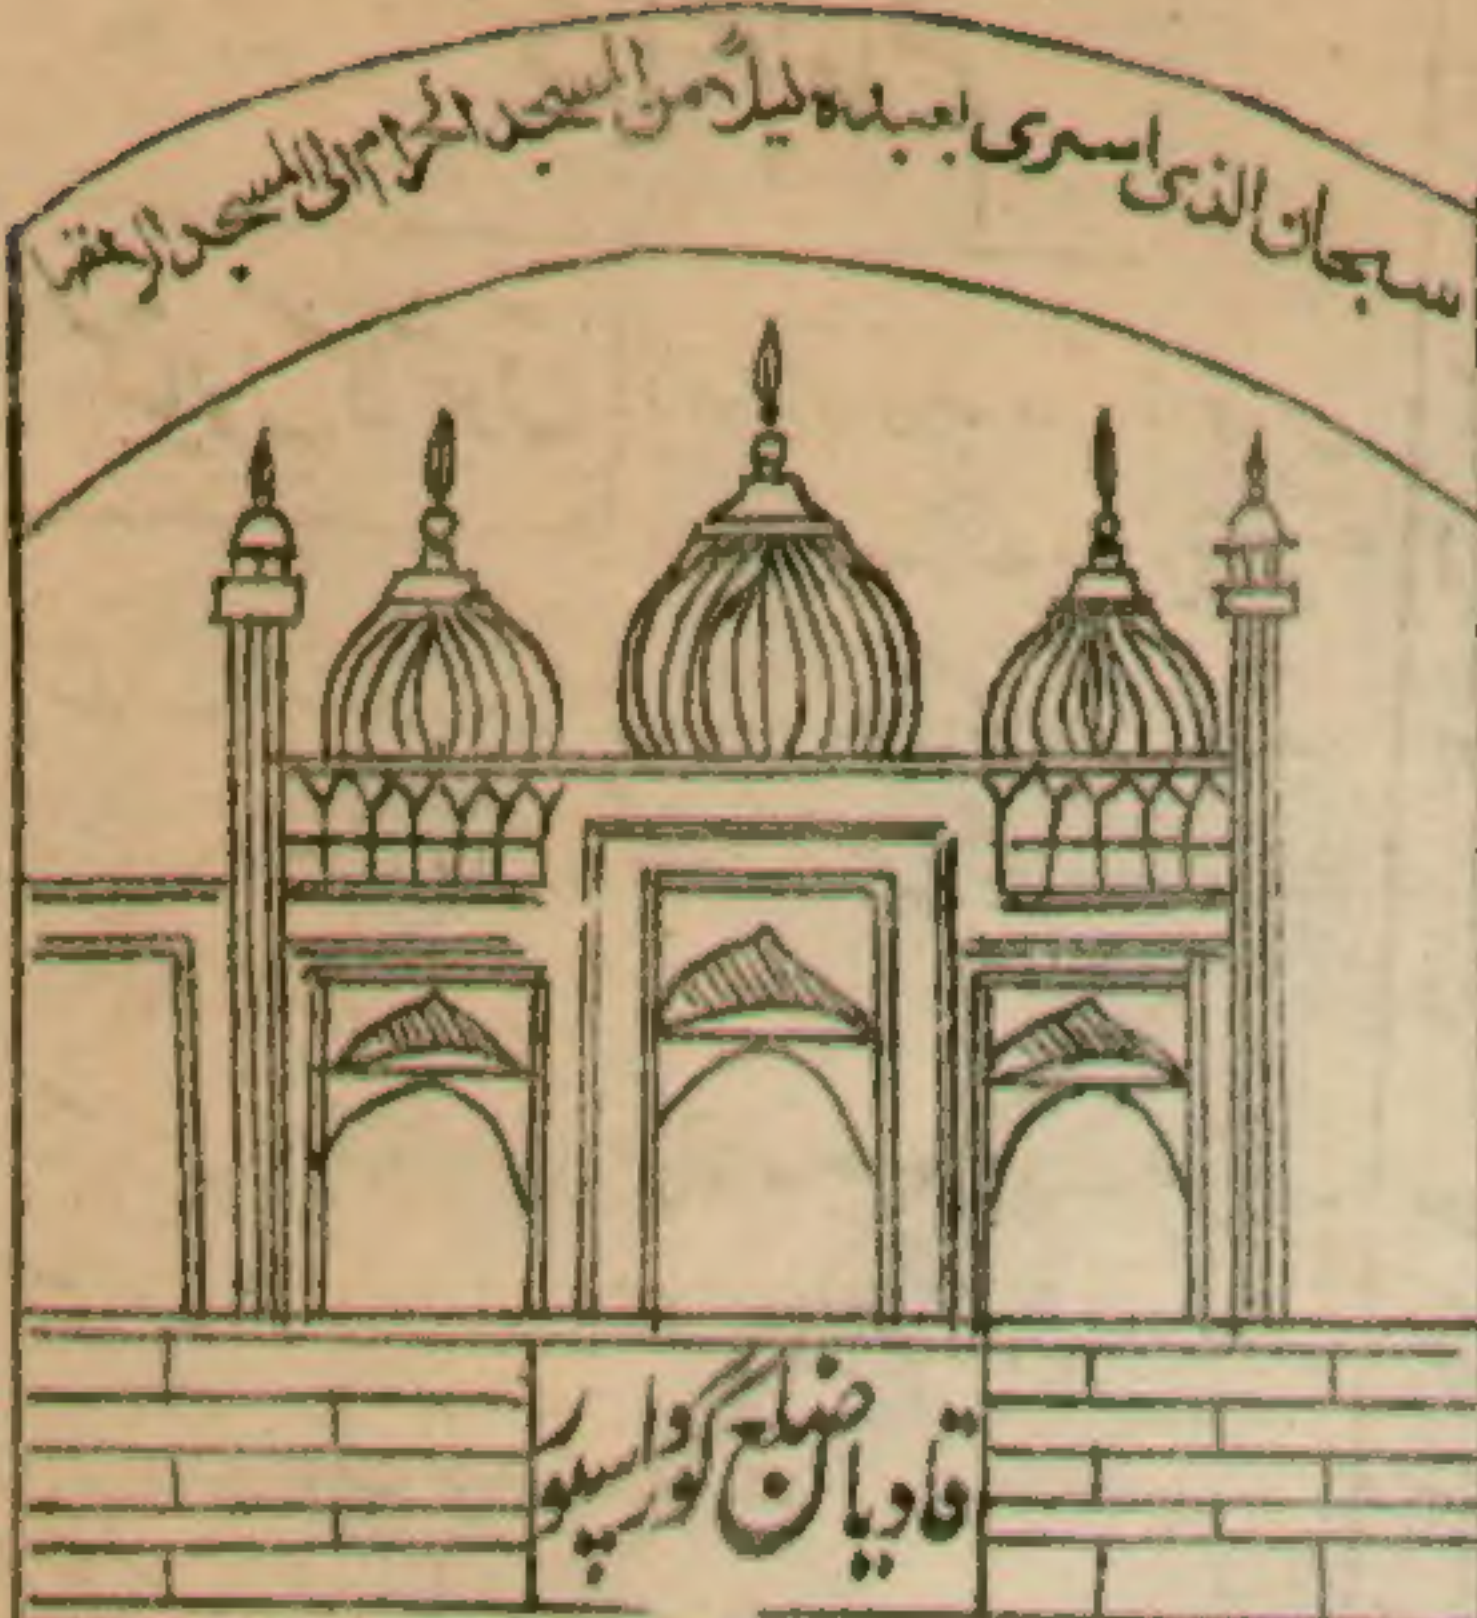 سبحان الذی اسری بعبدہ لیلاً من المسجد الحرام الی المسجد الاقصا
قادیان ضلع گورداسپور